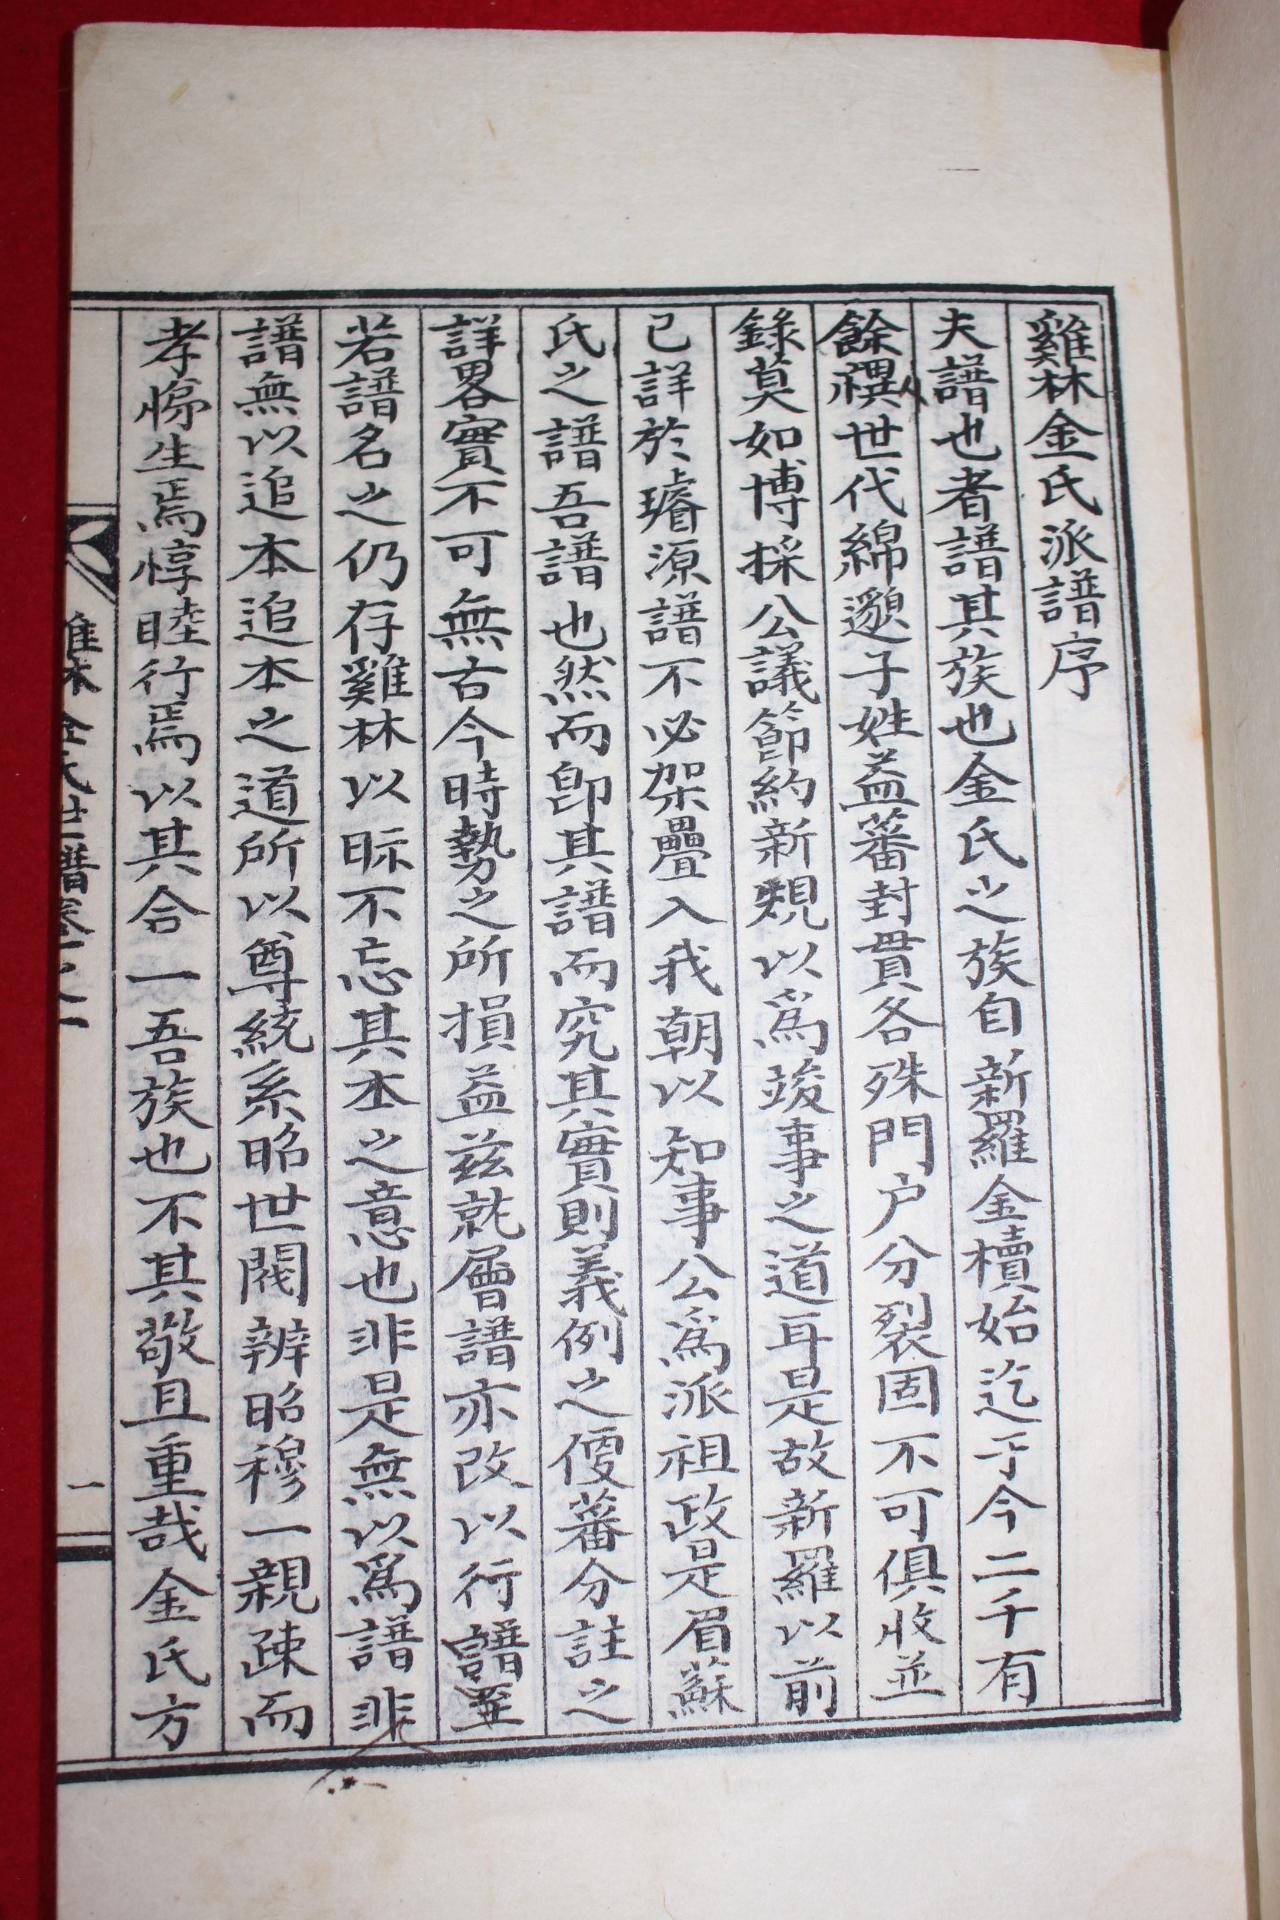 雞林金氏派譜序
夫譜也者譜其族也金氏之族自新羅金櫝始迄于今二千有
餘禩世代綿邈子姓益蕃封貫各殊門户分裂固不可俱收並
錄莫如博採公議節約新䂓以爲竣事之道耳是故新羅以前
已詳於璿源譜不必架疊入我朝以知事公爲派祖政是眉蘇
氏之譜吾譜也然而卽其譜而究其實則義例之優蕃分註之
詳畧實不可無古今時勢之所損益兹就層譜亦改以行譜至
若譜名之仍存雞林以眎不忘其本之意也非是無以爲譜非
譜無以追本追本之道所以尊統系昭世閥辨昭穆一親疎而
孝悌生焉惇睦行焉以其合一吾族也不其敬且重哉金氏方
雞林金氏世譜卷一之一
一